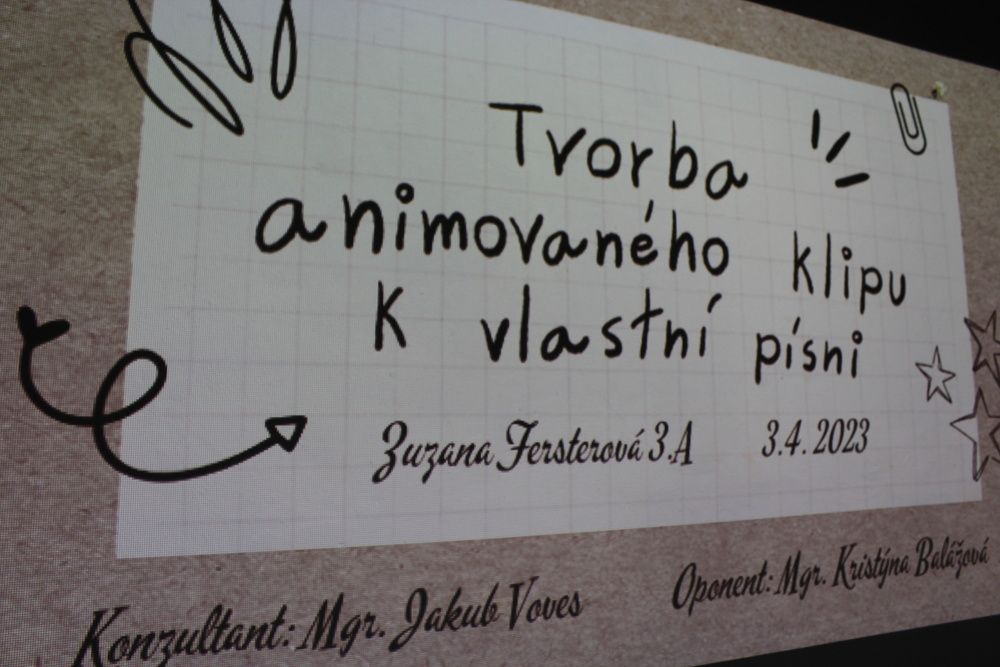 Tvorba
animovaného klipu
K vlastní písni
Zuzana Fersterová 3.A 3.4.2023
Konzultant: Mgr. Jakub Voves
Oponent: Mgr. Kristýna Balážová